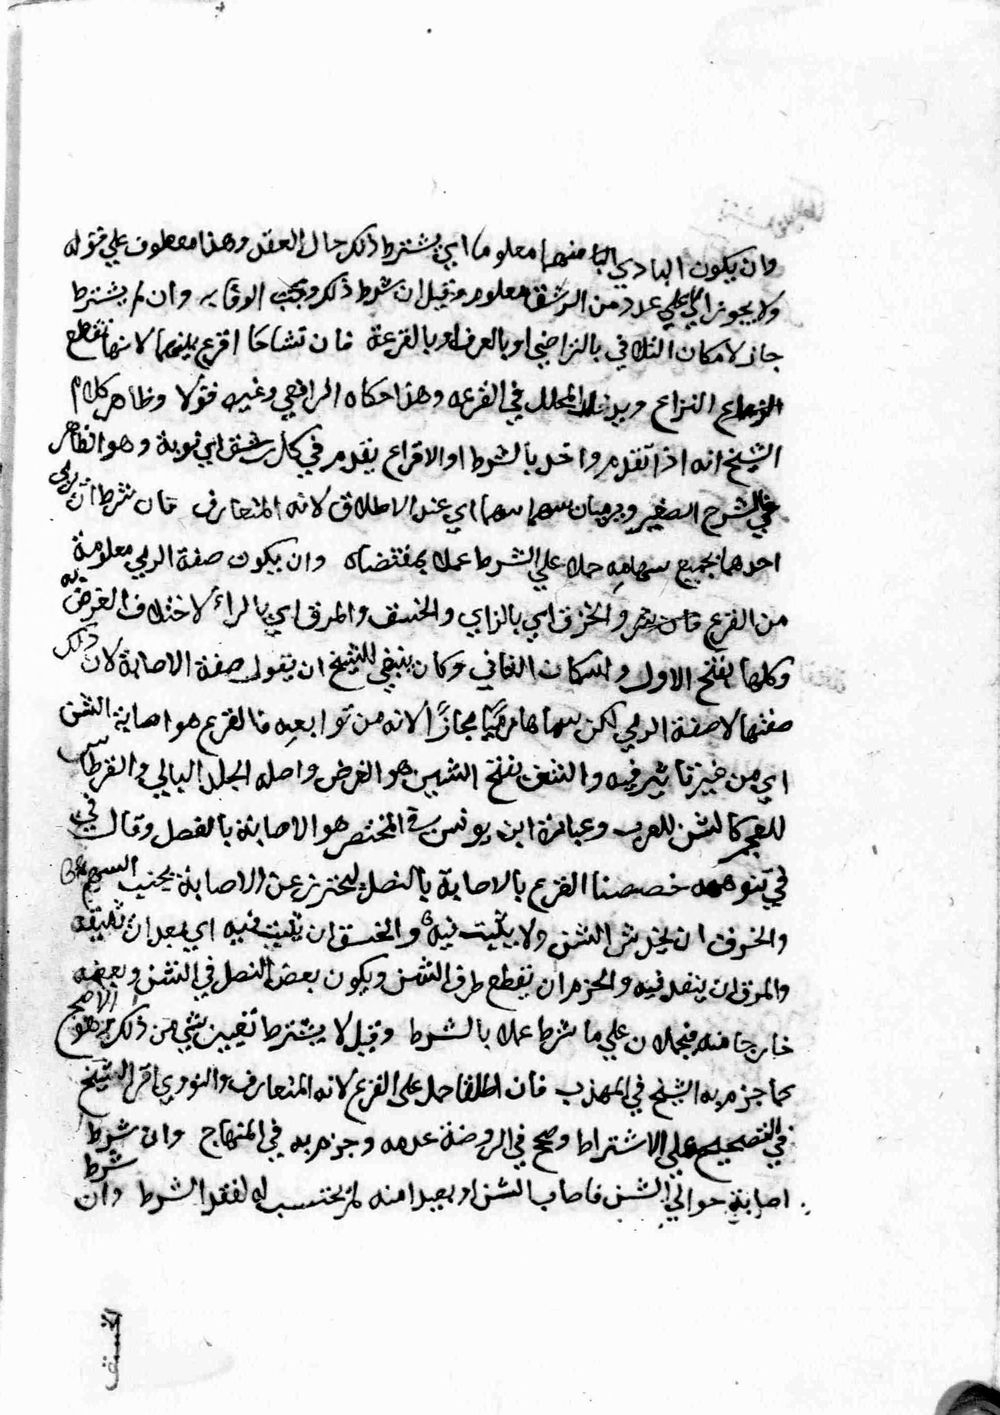 وان يكون البادي منهما معلوما اي يشترط ذلك حال العقد وهذا معطوف علي قوله
ولا يجوز الا علي عدد من الرشق معلوم وقيل ان شرط ذلك وجب الوفا به وان لم يشترط
جاز لامكان التلافي بالتراضي او بالعرف او بالقرعة فان تشاحا اقرع بينهما لانها تقطع
النزاع ويدخل المحلل في القرعه وهذا حكاه الرافعي وغيره قولا وظاهر كلام
الشيخ انه اذا تقدم واحد بالشرط او الاقراع يقدم في كل رشق اي نوبة وهو الظاهر
في الشرح الصغير ويرميان سهما سهما اي عند الاطلاق لانه المتعارف فان شرط ان يرمي
احدهما بجميع سهامه حملا علي الشرط عملا بمقتضاه وان يكون صفة الرمي معلومة
من القرع والخزق اي بالزاي والخسق والمرق اي بالراء لاختلاف الغرض به
وكلها بفتح الاول واسكان الثاني وكان ينبغي للشيخ ان يقول صفة الاصابة لان ذلك
صفتها لا صفة الرمي لكن سماها رميا مجازا لانه من توابعه فالقرع هو اصابة الشن
اي من غير تاثير فيه والشن بفتح الشين هو الغرض واصله الجلد البالي والقرطاس
للعجم كالشن للعرب وعبارة ابن يونس في المختصر هو الاصابة بالنصل وقال في
في تنويهه خصصنا القرع بالاصابة بالنصل ليحترز عن الاصابة بجنب السهم
والخزق ان يخدش الشن ولا يثبت فيه والخسق ان يثبت فيه اي بعد ان يثقبه
والمرق ان ينفذ فيه والخرم ان يقطع طرف الشن ويكون بعض النصل في الشن وبعضه
خارجا منه فيحملان علي ما شرط عملا بالشرط وقيل لا يشترط تعيين شي من ذلك وهو الاصح
كما جزم به الشيخ في المهذب فان اطلقا حمل على القرع لانه المتعارف والنووي اقر الشيخ
في التصحيح علي الاشتراط وصحح في الروضة عدمه وجزم به في المنهاج وان شرط
اصابة حوالي الشن فاصاب الشن او بعيدا منه لم يحتسب له لفقد الشرط وان شرط
الخسق